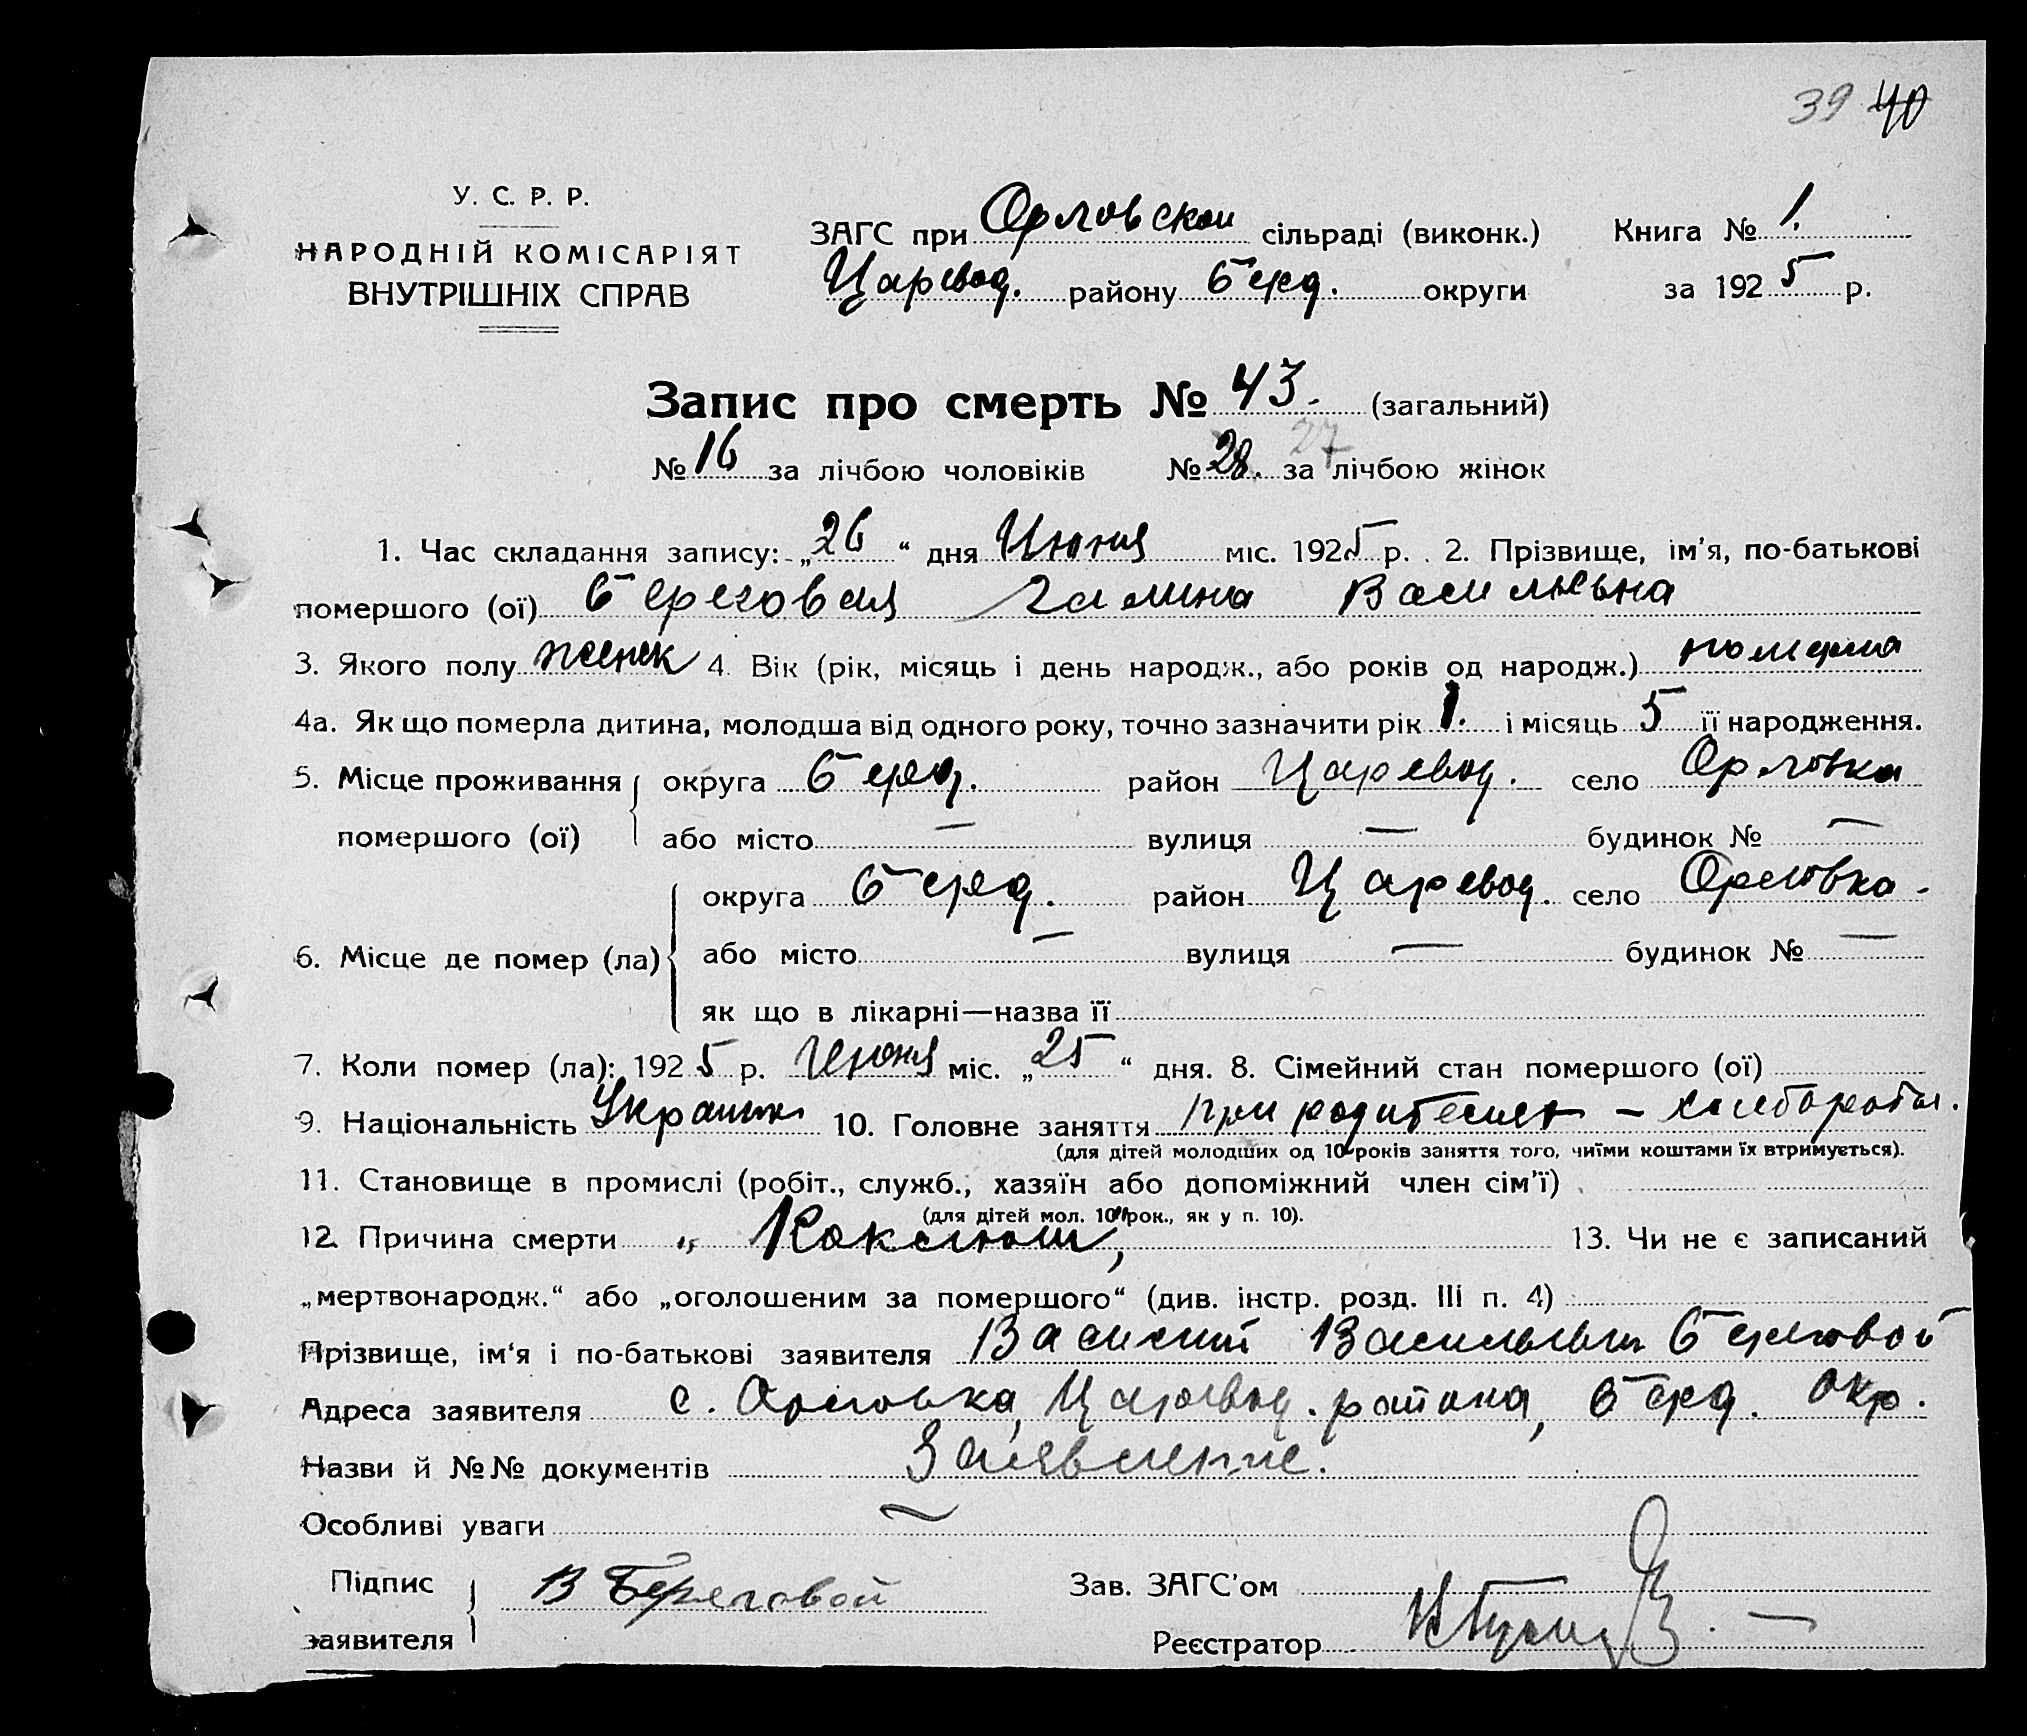 39 40
У. С. Р. Р.
НАРОДНІЙ КОМІСАРІЯТ
ВНУТРІШНІХ СПРАВ
ЗАГС при Орловской сільраді (виконк.)
Царевод. району Берд. округи
Книга № 1.
за 1925 р.
Запис про смерть № 43. (загальний)
№ 16 за лічбою чоловіків № 28. 27 за лічбою жінок
1. Час складання запису: „26“ дня Июня міс. 1925 р. 2. Прізвище, ім'я, по-батькові
помершого (ої) Береговая Галина Васильевна
3. Якого полу женск 4. Вік (рік, місяць і день народж., або років од народж.) померла
4а. Як що померла дитина, молодша від одного року, точно зазначити рік 1. і місяць 5 її народження.
5. Місце проживання округа Берд. район Царевод. село Орловка
помершого (ої) або місто — вулиця — будинок № —
округа Берд. район Царевод. село Орловка.
6. Місце де помер (ла) або місто — вулиця — будинок № —
як що в лікарні—назва її
7. Коли помер (ла): 1925 р. Июня міс. „25“ дня. 8. Сімейний стан помершого (ої)
9. Національність Украинк 10. Головне заняття при родителях – хлебороб
(для дітей молодших од 10 років заняття того, чиїми коштами їх втримується).
11. Становище в промислі (робіт., служб., хазяїн або допоміжний член сім'ї)
(для дітей мол. 10 рок., як у п. 10).
12. Причина смерти „ Коклюш, 13. Чи не є записаний
„мертвонародж.“ або „оголошеним за помершого“ (див. інстр. розд. III п. 4)
Прізвище, ім'я і по-батькові заявителя Василий Васильевич Береговой
Адреса заявителя с. Орловка, Царевод. района, Берд. окр.
Назви й №№ документів Заявление.
Особливі уваги —
Підпис В Береговой Зав. ЗАГС'ом
заявителя Реєстратор